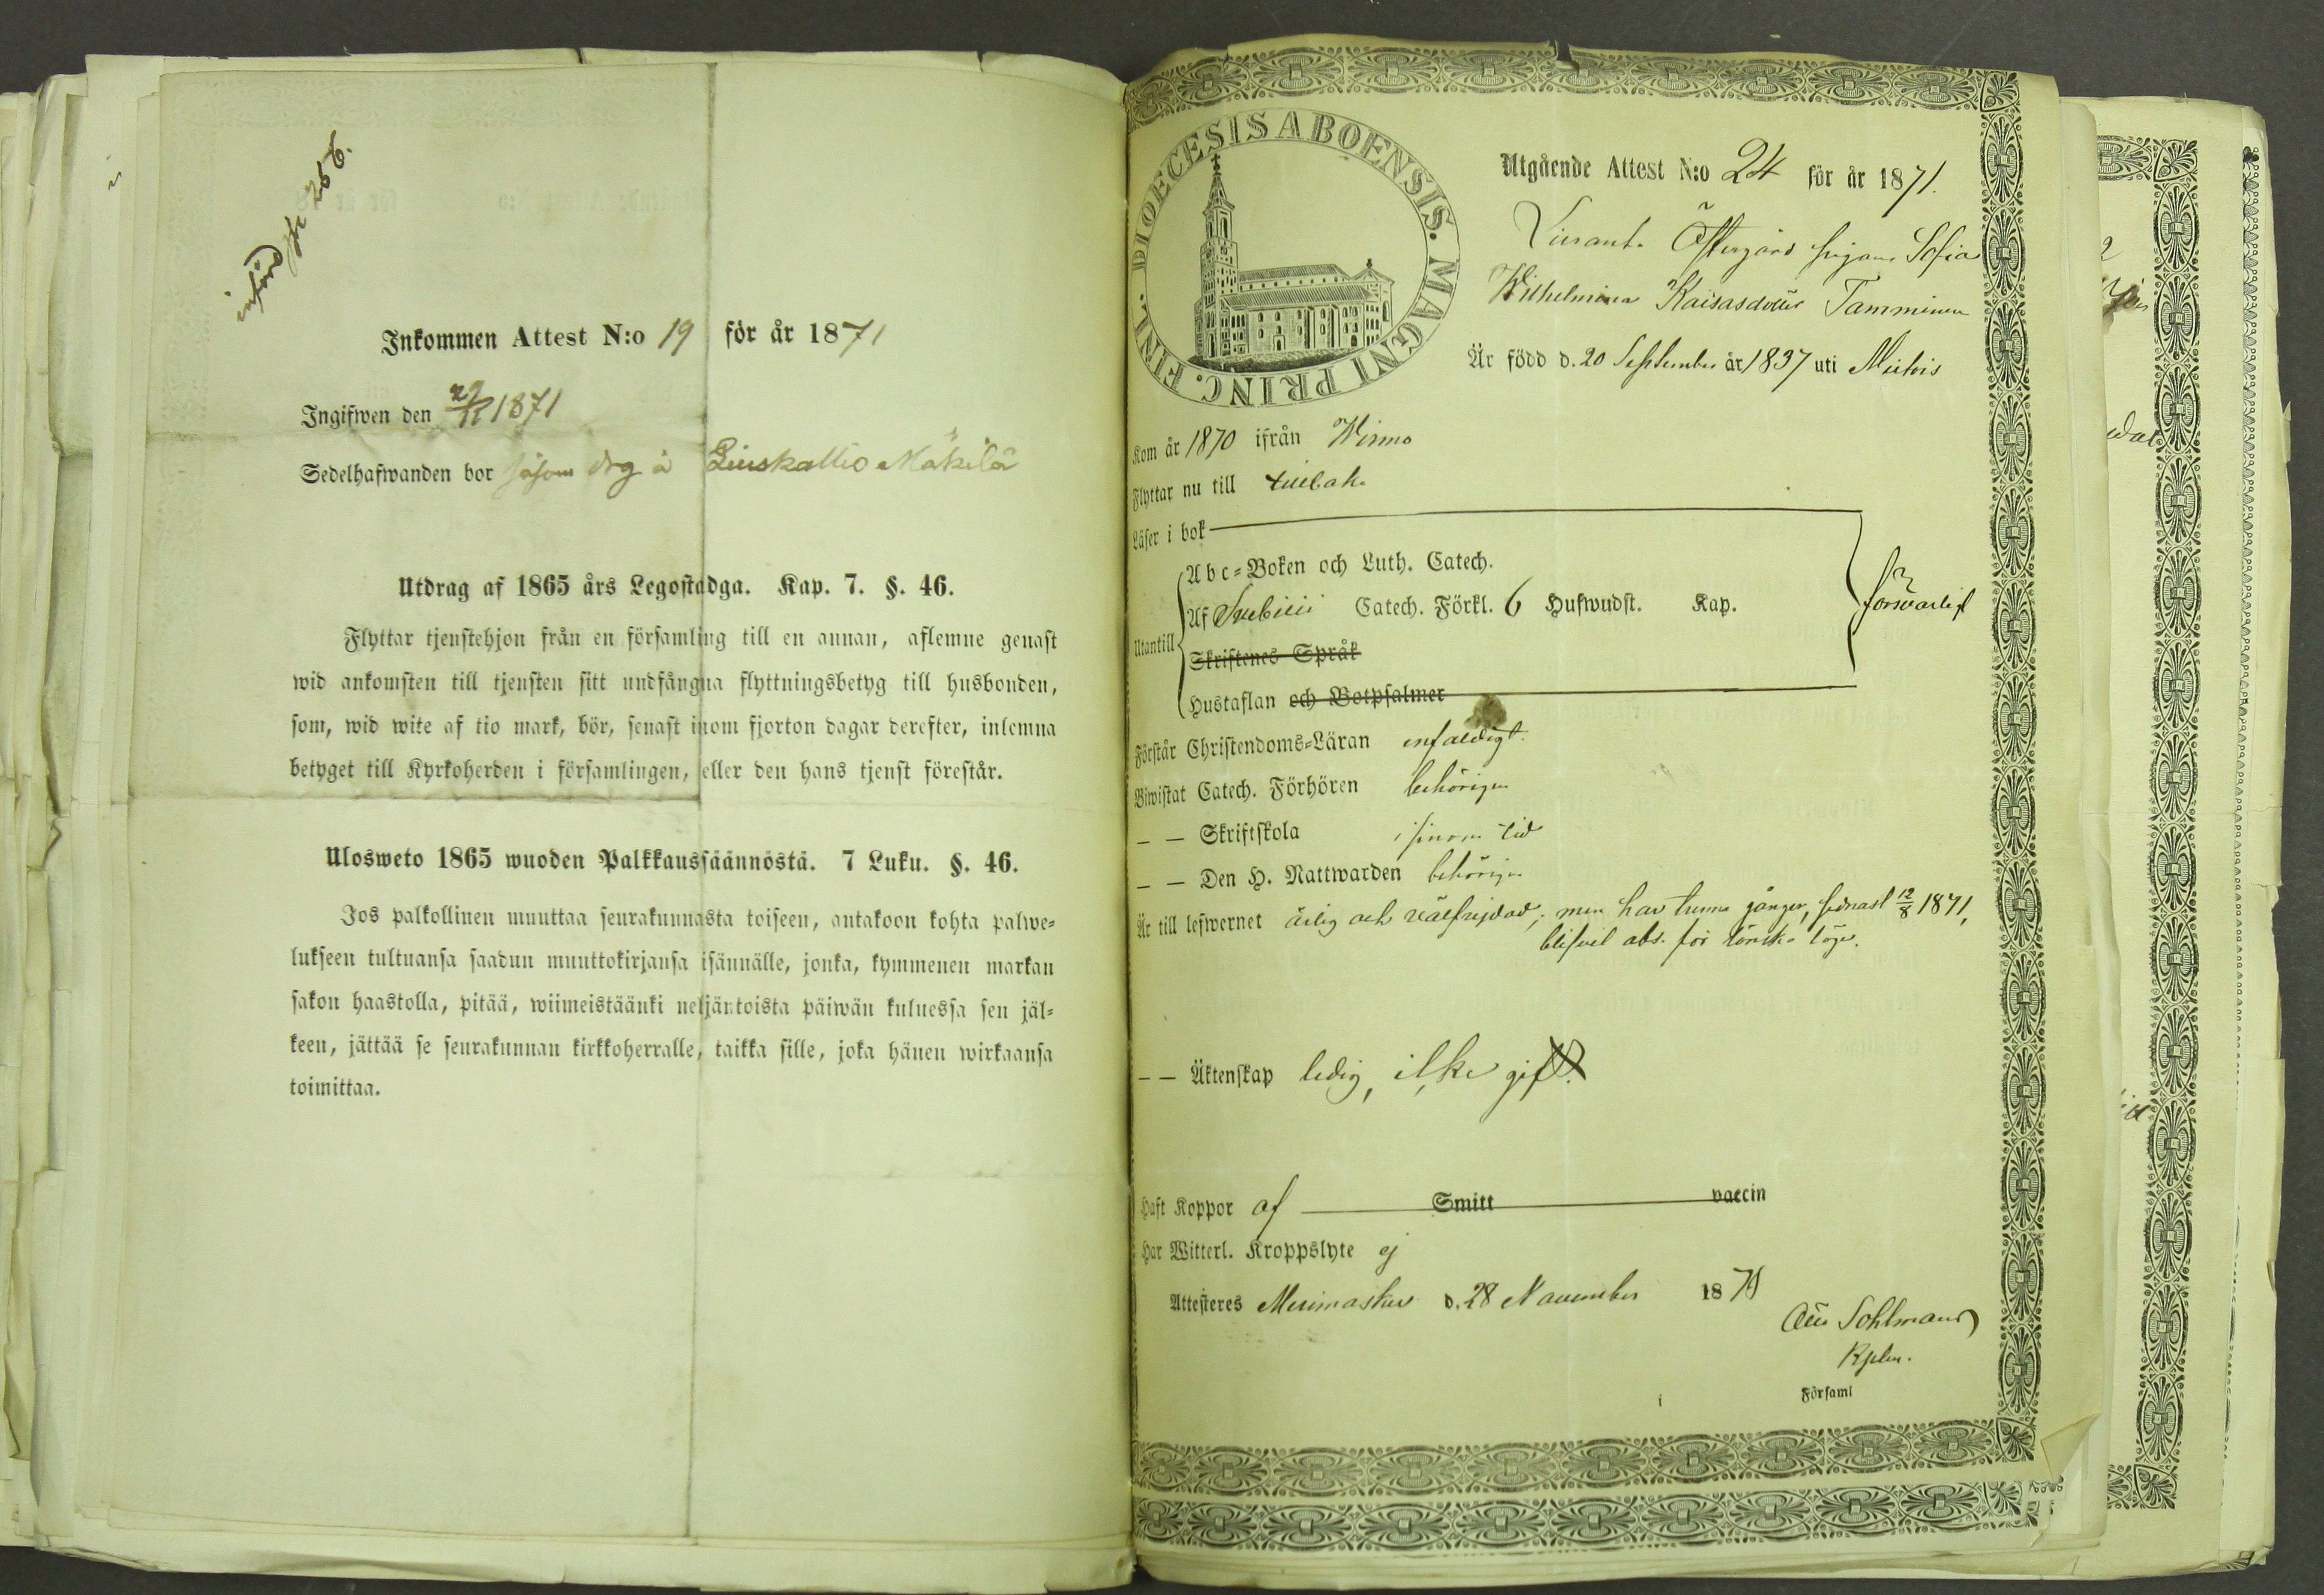 införd p. 256.
Inkommen Attest N:o 19 för år 1871
Ingifwen den 29/12 1871
Sedelhafwanden bor såsom drg å Liuskallio Mäkilä
Utdrag af 1865 års Legostadga. Kap. 7. §. 46.
Flyttar tjenstehjon från en församling till en annan, aflemne genast
wid ankomsten till tjensten sitt undfångna flyttningsbetyg till husbonden,
som, wid wite af tio mark, bör, senast inom fjorton dagar derefter, inlemna
betyget till Kyrkoherden i församlingen, eller den hans tjenst förestår.
Ulosweto 1865 wuoden Palkkaussäännöstä. 7 Luku. §. 46.
Jos palkollinen muuttaa seurakunnasta toiseen, antakoon kohta palwe=
lukseen tultuansa saadun muuttokirjansa isännälle, jonka, kymmenen markan
sakon haastolla, pitää, wiimeistäänki neljäntoista päiwän kuluessa sen jäl=
keen, jättää se seurakunnan kirkkoherralle, taikka sille, joka hänen wirkaansa
toimittaa.
DIOECESIS ABOENSIS. MAGNI PRINC. FINL.
Utgående Attest N:o 24 för år 1871.
Östergård pigan Sofia
Wilhelmina Kaisasdotter Tamminen
Är född d. 20 September år 1837 uti Mietois
Kom år 1870 ifrån Wirmo
Flyttar nu till tillbaka
Läser i bok
Abc=Boken och Luth. Catech.
Utantill Af Svebilii Catech. Förkl. 6 Hufwudst. Kap. försvarligt
Skriftenes Språk
Hustaflan och Botpsalmer
Förstår Christendoms=Läran enfaldigt.
Biwistat Catech. Förhören behörigen
— — Skriftskola i sinom tid
— — Den H. Nattwarden behörigen
Är till lefwernet ärlig och välfrejdad; men har trenne gånger, sednast 12/8 1871,
blifvit abs. för lönska läge.
— — Äktenskap ledig, icke gift
Haft Koppor af Smitt vaccin
Har Witterl. Kroppslyte ej
Attesteres Merimasku d. 28 November 1871
Sohlman
Kplan.
i Församl